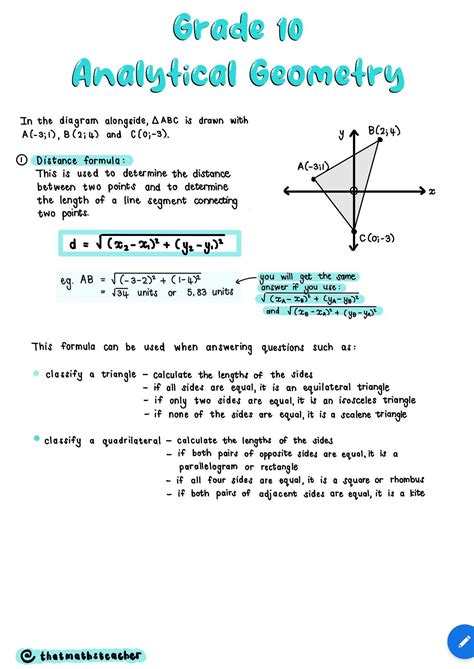 Grade 10
Analytical Geometry
In the diagram alongside, △ABC is drawn with
A(-3;1), B(2;4) and C(0;-3).
① Distance formula:
This is used to determine the distance
between two points and to determine
the length of a line segment connecting
two points.
d = √(x₂ - x₁)² + (y₂ - y₁)²
eg. AB = √(-3-2)² + (1-4)²
= √34 units or 5,83 units
y
B(2;4)
A(-3;1)
x
C(0;-3)
you will get the same
answer if you use:
√(x_A - x_B)² + (y_A - y_B)²
and √(x_B - x_A)² + (y_B - y_A)²
This formula can be used when answering questions such as:
• classify a triangle - calculate the lengths of the sides
- if all sides are equal, it is an equilateral triangle
- if only two sides are equal, it is an isosceles triangle
- if none of the sides are equal, it is a scalene triangle
• classify a quadrilateral - calculate the lengths of the sides
- if both pairs of opposite sides are equal, it is a
parallelogram or rectangle
- if all four sides are equal, it is a square or rhombus
- if both pairs of adjacent sides are equal, it is a kite
@thatmathsteacher